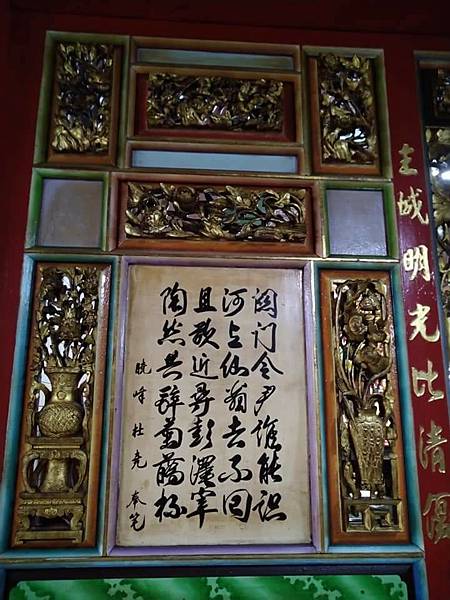 關門令尹誰能識
河上仙翁去不回
且欲近尋彭澤宰
陶然共醉菊蘤杯
曉峰杜堯奉筆
主城明光比清